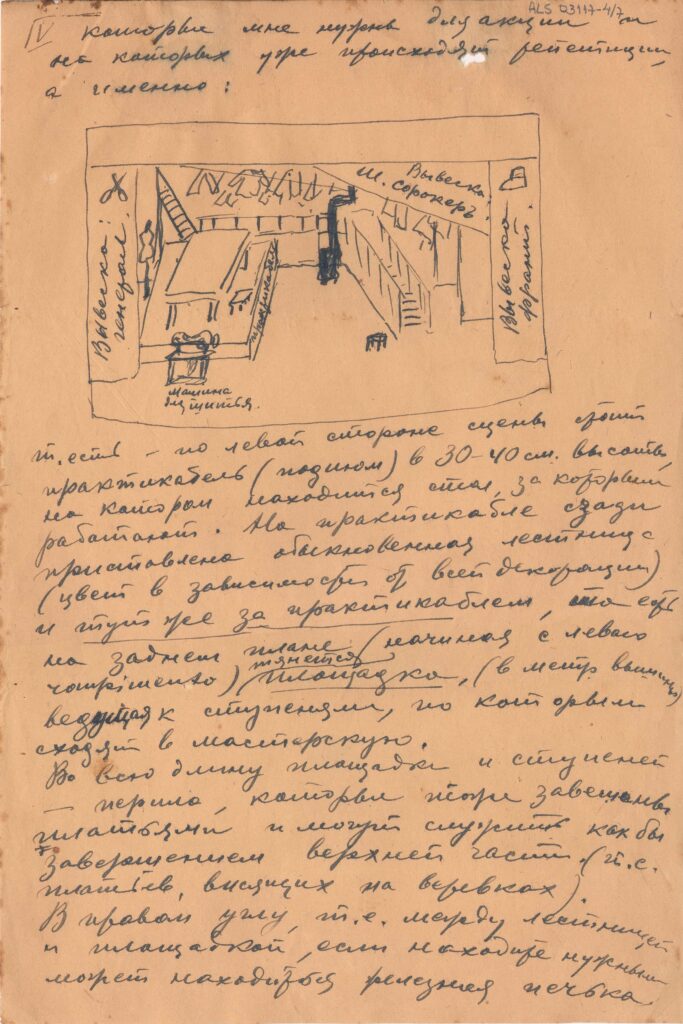 ALS 03117-4/7
IV которые мне нужны для акции и
на которых уже происходят репетиции,
а именно:
Вывеска: генерал.
Вывеска: М. Сорокеръ
Вывеска франт.
практикабль
машина
для шитья.
т. есть – по левой стороне сцены стоит
практикабль (подиюм) в 30–40 см. высоты,
на котором находится стол, за которым
работают. На практикабле сзади
приставлена обыкновенная лестница
(цвет в зависимости от всей декорации)
и тут же за практикаблем, то есть
на заднем плане (начиная с левого
rompimento) тянется площадка, (в метр вышины)
ведущая к ступеням, по которым
сходят в мастерскую.
Во всю длину площадки и ступеней
– перила, которые тоже завешены
платьями и могут служить как бы
завершением верхней части (т.е.
платьев, висящих на веревках).
В правом углу, т.е. между лестницей
и площадкой, если находите нужным
может находиться железная печька.